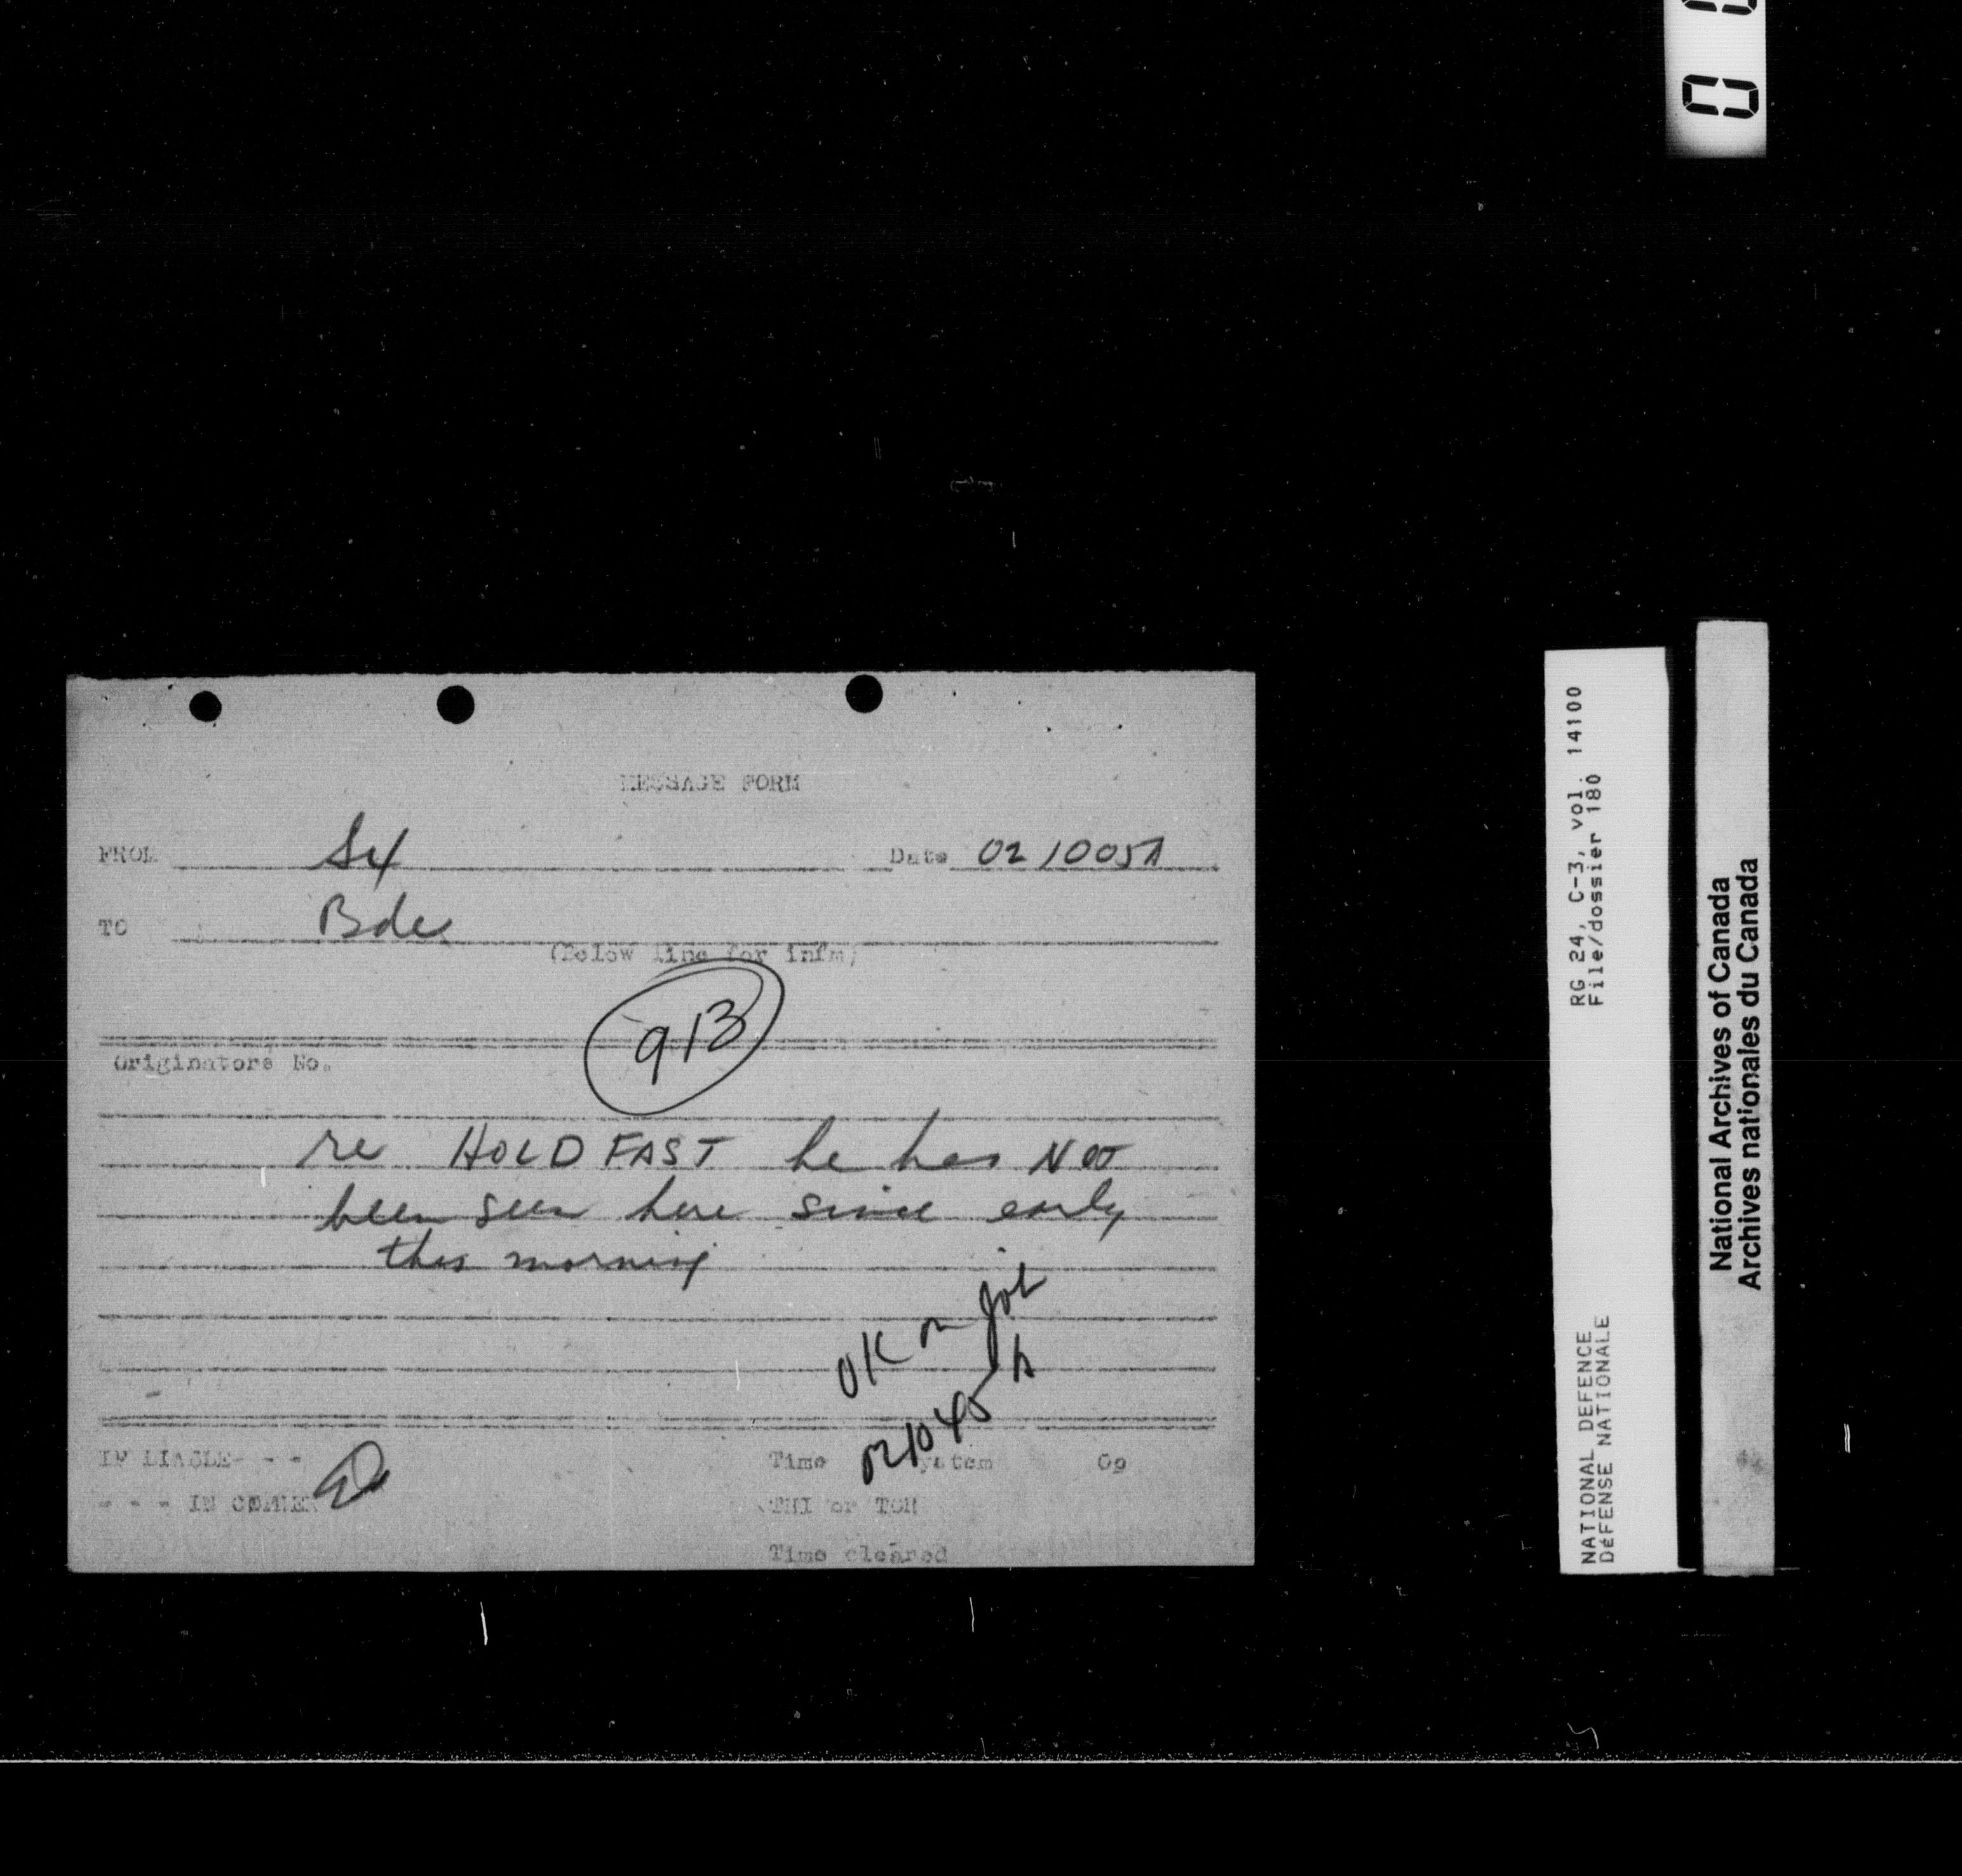 MESSAGE FORM
FROM Date 021005A
TO Bde
(Below line for infm)
913
Originators No.
re HOLDFAST he has NOT
been seen here since early
this morning
OK on job
021045A
IF LIABLE - - - Time System Op
- - - IN CIPHER THI or TOR
Time cleared
RG 24, C-3, vol. 14100
File/dossier 180
NATIONAL DEFENCE
DéFENSE NATIONALE
National Archives of Canada
Archives nationales du Canada